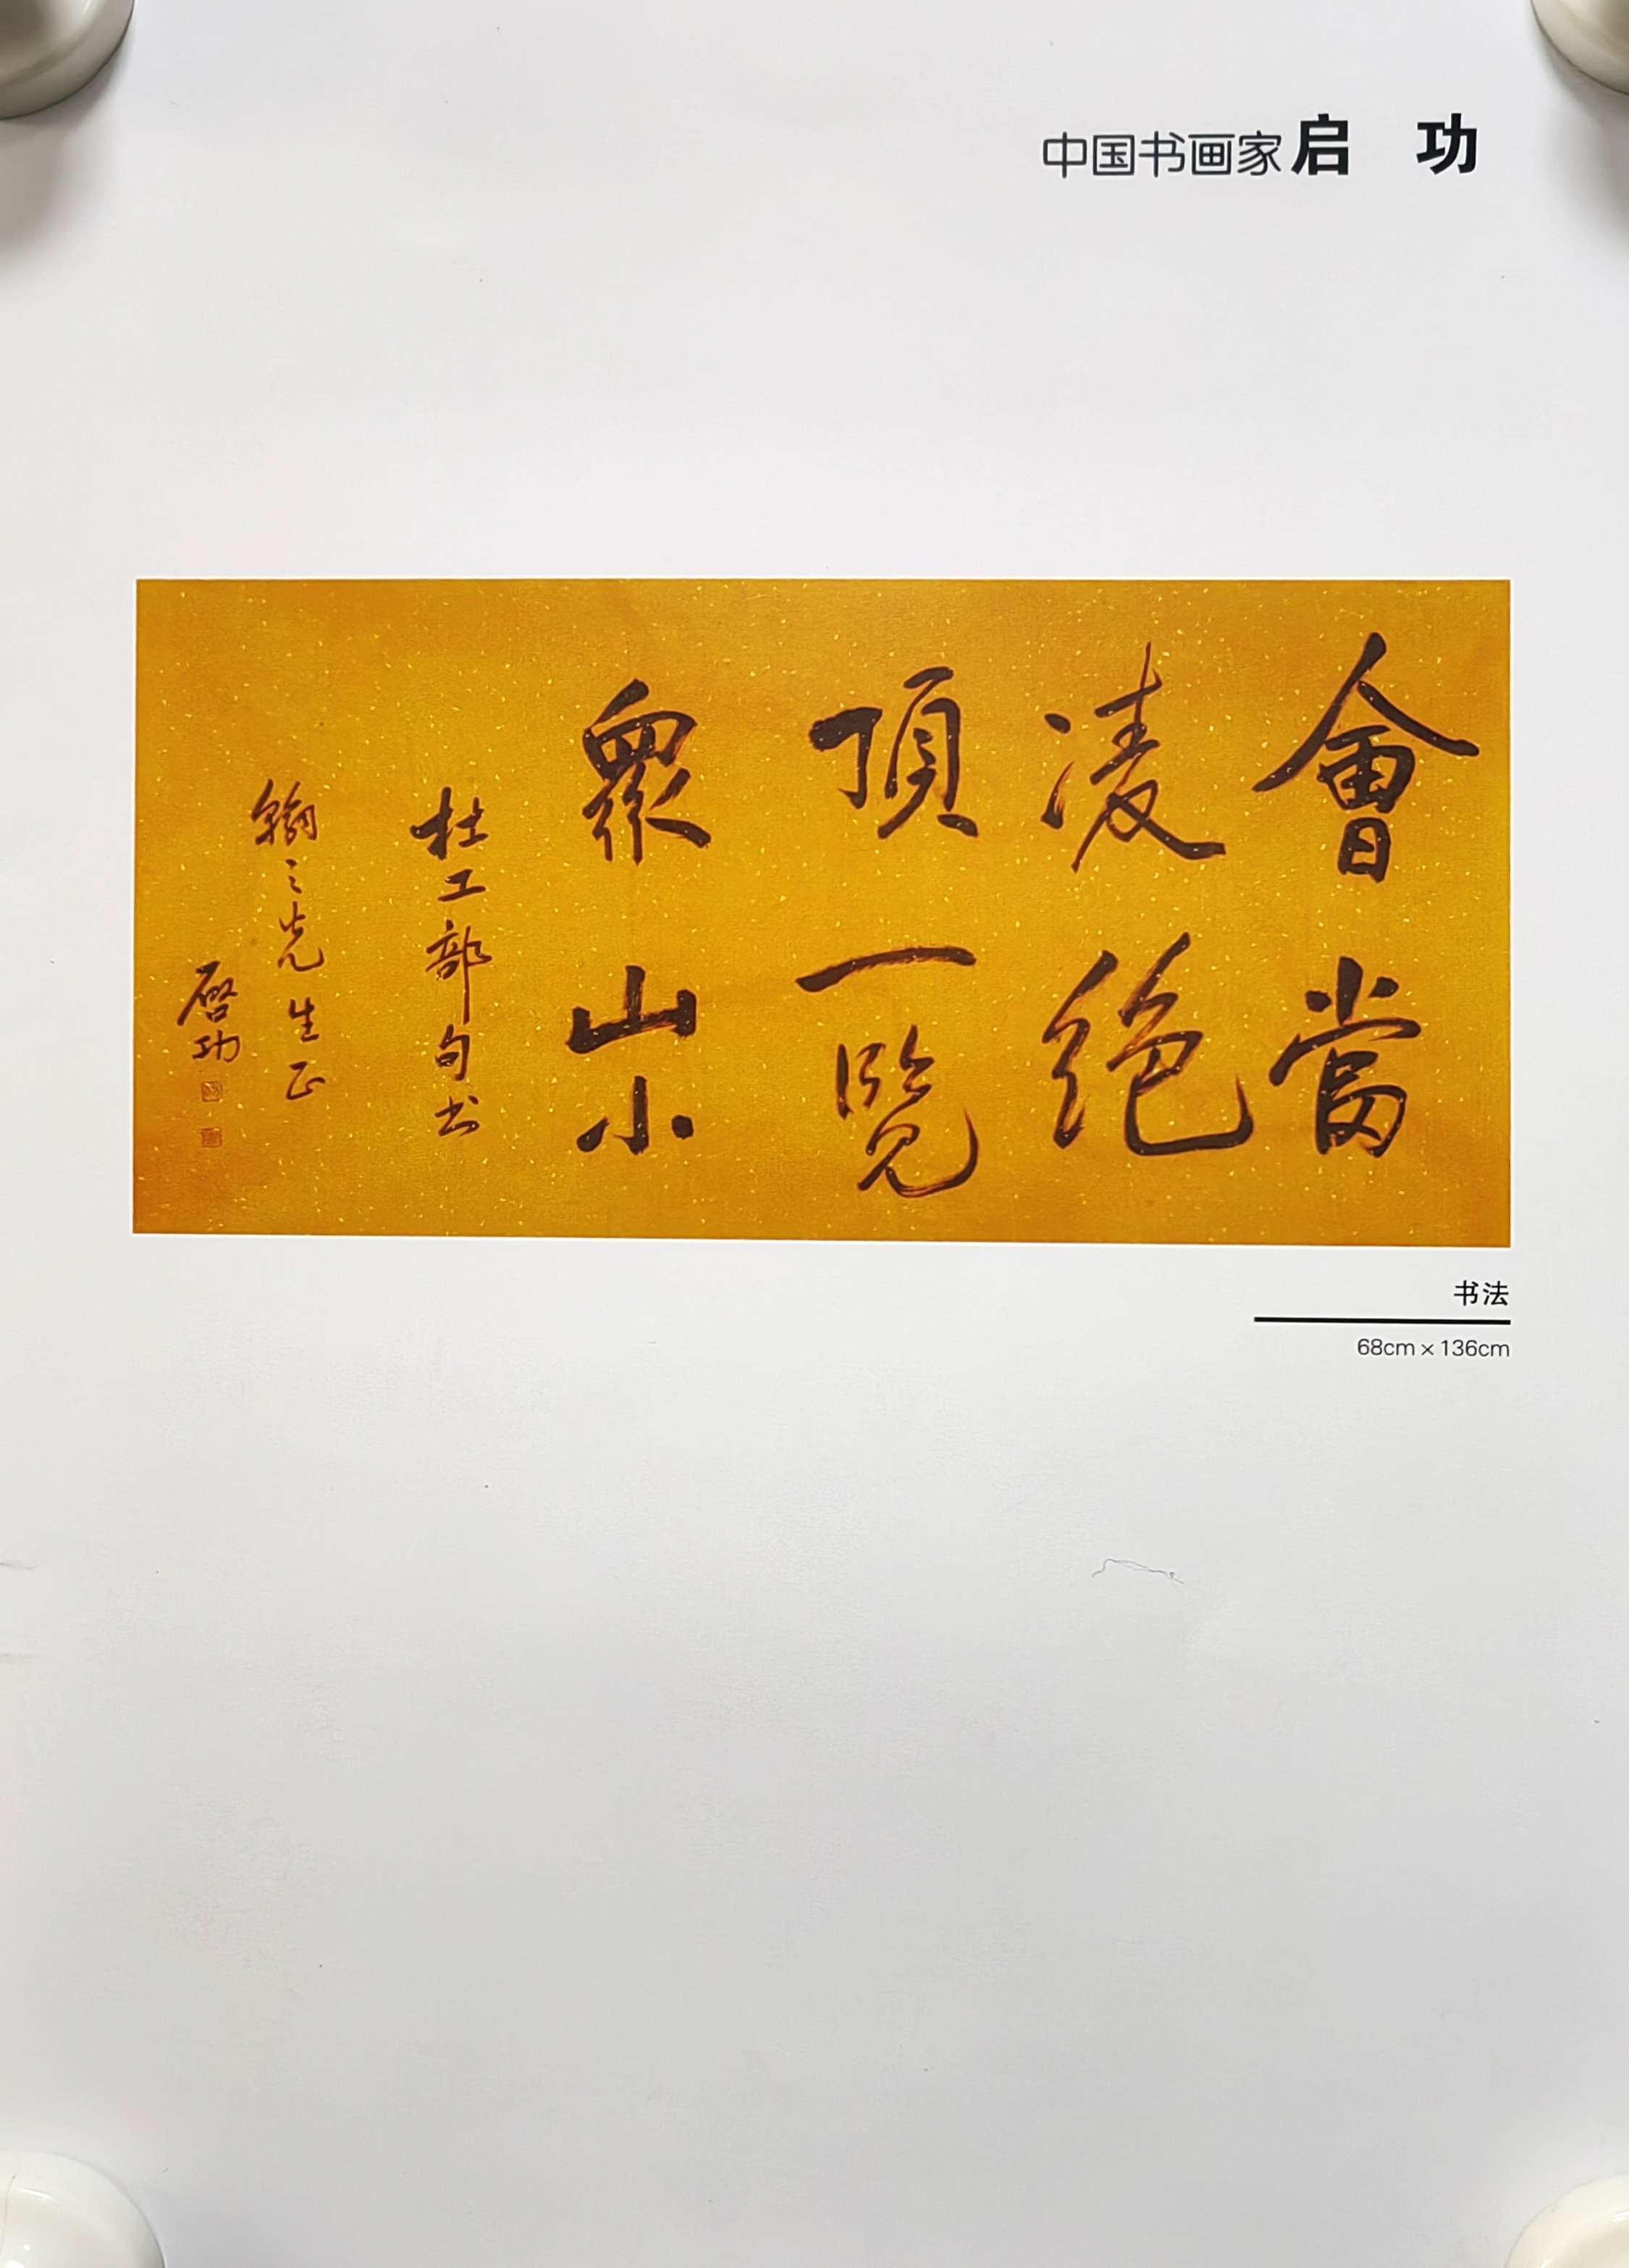 中国书画家启 功
會當
凌絶
頂一覧
眾山小
杜工部句书
翰之先生正
啓功
书法
68cm×136cm